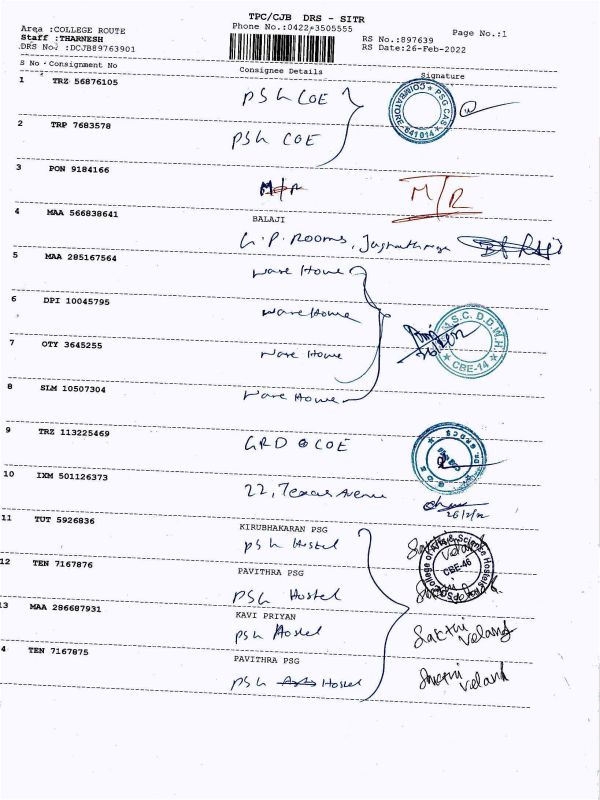 TPC/CJB DRS - SITR
Area :COLLEGE ROUTE
Phone No.:0422-3505555
Page No.:1
Staff :THARNESH
RS No.:897639
DRS No. :DCJB89763901
RS Date:26-Feb-2022
S No Consignment No Consignee Details Signature
1 TRZ 56876105 PSG COE
PSG CAS COIMBATORE-641014
2 TRP 7683578 PSG COE
3 PON 9184166 M/R M/R
4 MAA 566838641 BALAJI
G.P. Rooms,
5 MAA 285167564 Ware House
6 DPI 10045795 Ware House
M.S.C. D.D.W.H. CBE-14
7 OTY 3645255 Ware House
8 SLM 10507304 Ware House
9 TRZ 113225469 GRD COE
10 IXM 501126373 22, Texas Avenue
26/2/22
11 TUT 5926836 KIRUBHAKARAN PSG
PSG Hostel
College of Arts & Science Hostels CBE-46
12 TEN 7167876 PAVITHRA PSG
PSG Hostel
13 MAA 286687931 KAVI PRIYAN
PSG Hostel Sakthi Velang
4 TEN 7167875 PAVITHRA PSG
PSG Hostel Sakthi